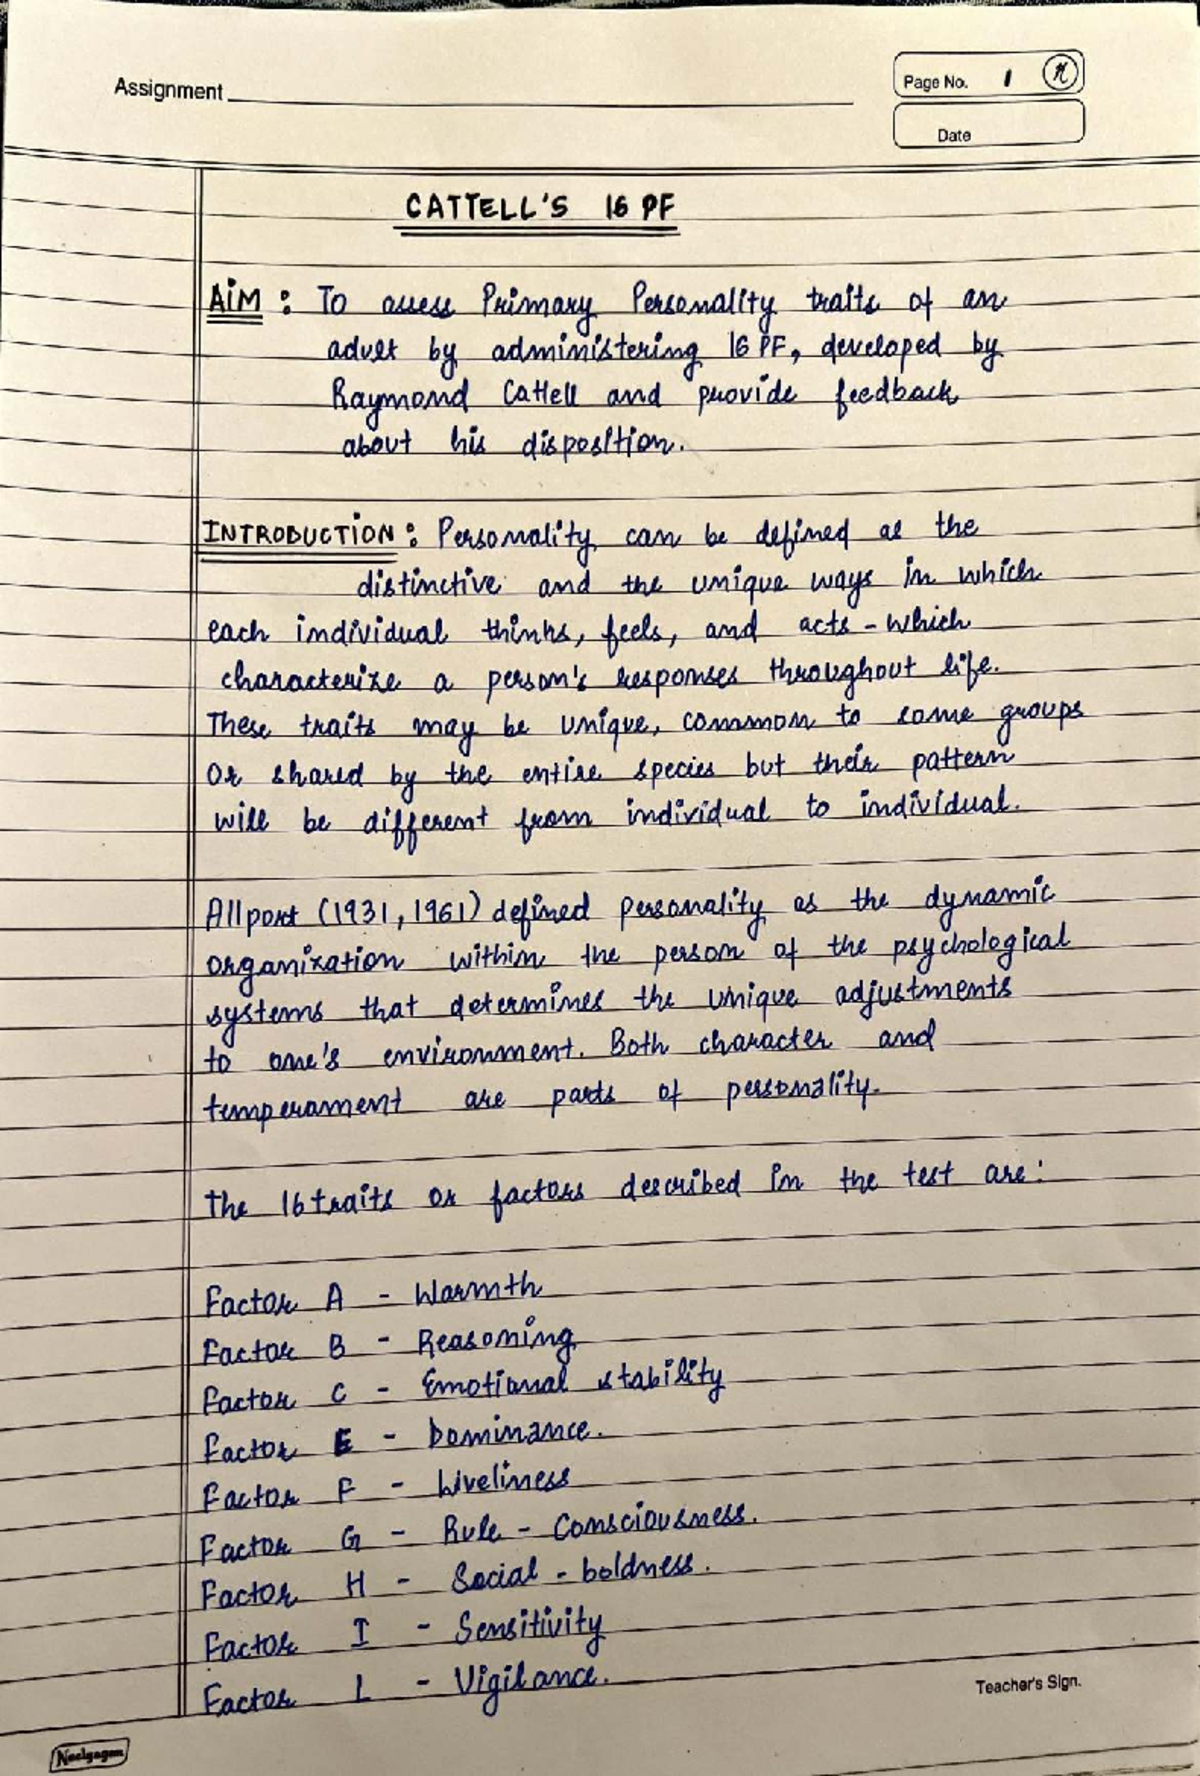 Assignment
Page No. 1
Date
CATTELL'S 16 PF
AIM : To assess Primary Personality traits of an
adult by administering 16 PF, developed by
Raymond Cattell and provide feedback
about his disposition.
INTRODUCTION : Personality can be defined as the
distinctive and the unique ways in which
each individual thinks, feels, and acts - which
characterize a person's responses throughout life.
These traits may be unique, common to some groups
or shared by the entire species but their pattern
will be different from individual to individual.
Allport (1931, 1961) defined personality as the dynamic
organization within the person of the psychological
systems that determines the unique adjustments
to one's environment. Both character and
temperament are parts of personality.
The 16 traits or factors described in the test are:
Factor A - Warmth
Factor B - Reasoning
Factor C - Emotional stability
Factor E - Dominance.
Factor F - Liveliness
Factor G - Rule - Consciousness.
Factor H - Social - boldness.
Factor I - Sensitivity
Factor L - Vigilance.
Teacher's Sign.
Neelgagan